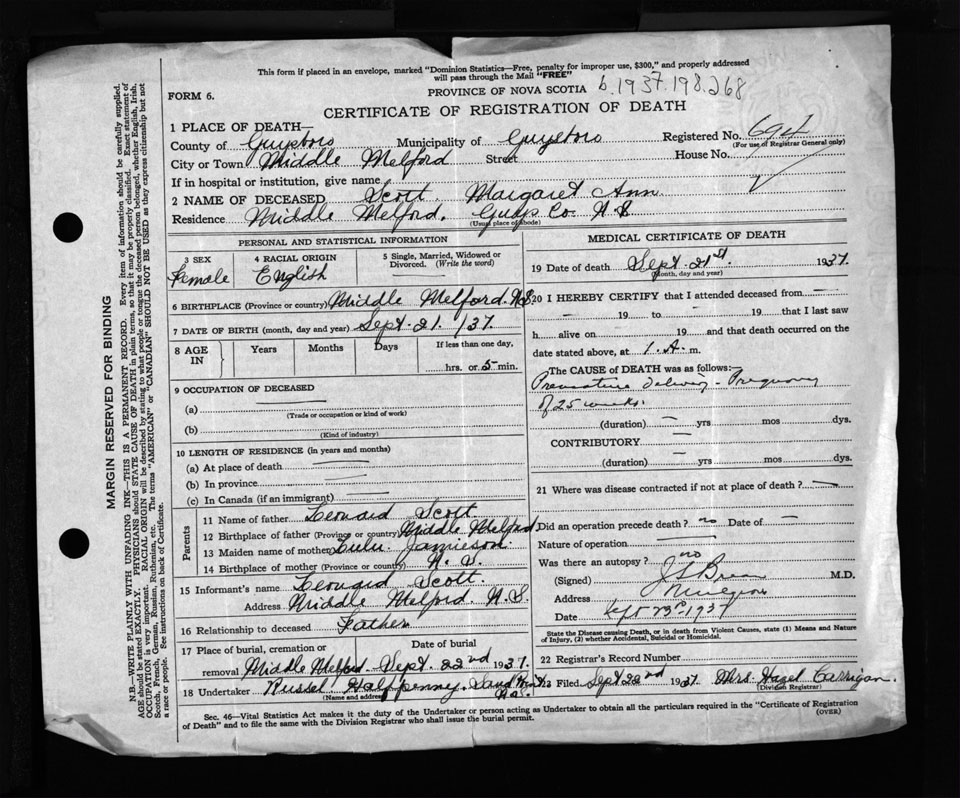 This form if placed in an envelope, marked "Dominion Statistics—Free, penalty for improper use, $300," and properly addressed
will pass through the Mail "FREE"
b.1937.198.268
FORM 6.
PROVINCE OF NOVA SCOTIA
CERTIFICATE OF REGISTRATION OF DEATH
1 PLACE OF DEATH—
Registered No. 694
(For use of Registrar General only)
County of Guysboro Municipality of Guysboro
City or Town Middle Melford Street House No.
If in hospital or institution, give name
2 NAME OF DECEASED Scott, Margaret Ann
Residence Middle Melford, Guys. Co. N.S.
(Usual place of abode)
PERSONAL AND STATISTICAL INFORMATION
3 SEX Female
4 RACIAL ORIGIN English
5 Single, Married, Widowed or
Divorced. (Write the word)
6 BIRTHPLACE (Province or country) Middle Melford. N.S
7 DATE OF BIRTH (month, day and year) Sept. 21. /37.
8 AGE IN Years Months Days If less than one day,
hrs. or 5 min.
9 OCCUPATION OF DECEASED
(a) —
(Trade or occupation or kind of work)
(b)
(Kind of industry)
10 LENGTH OF RESIDENCE (in years and months)
(a) At place of death —
(b) In province —
(c) In Canada (if an immigrant) —
Parents
11 Name of father Leonard Scott
12 Birthplace of father (Province or country) Middle Melford
13 Maiden name of mother Lulu Jamieson.
14 Birthplace of mother (Province or country) N. S.
15 Informant's name Leonard Scott.
Address Middle Melford. N.S.
16 Relationship to deceased Father
17 Place of burial, cremation or Date of burial
removal Middle Melford. Sept. 22nd 1937.
18 Undertaker Russel Halfpenny. Sand Pt
(Name and address) N.S.
MEDICAL CERTIFICATE OF DEATH
19 Date of death Sept. 21st. 1937.
(Month, day and year)
20 I HEREBY CERTIFY that I attended deceased from —
— 19 to — 19 that I last saw
h alive on — 19 and that death occurred on the
date stated above, at 1. A. m.
The CAUSE of DEATH was as follows:—
Premature Delivery - Pregnancy
of 25 weeks.
(duration) — yrs mos dys.
CONTRIBUTORY —
(duration) — yrs mos dys.
21 Where was disease contracted if not at place of death? —
Did an operation precede death? no Date of —
Nature of operation —
Was there an autopsy? no
(Signed) M.D.
Address Mulgrave
Date Sept 23rd 1937
State the Disease causing Death, or in death from Violent Causes, state (1) Means and Nature
of Injury, (2) whether Accidental, Suicidal or Homicidal.
22 Registrar's Record Number
23 Filed Sept 22nd 1937. Mrs. Hazel Carrigan.
(Division Registrar)
Sec. 46—Vital Statistics Act makes it the duty of the Undertaker or person acting as Undertaker to obtain all the particulars required in the "Certificate of Registration
of Death" and to file the same with the Division Registrar who shall issue the burial permit.
(OVER)
MARGIN RESERVED FOR BINDING
N.B.—WRITE PLAINLY WITH UNFADING INK—THIS IS A PERMANENT RECORD. Every item of information should be carefully supplied.
AGE should be stated EXACTLY. PHYSICIANS should STATE CAUSE OF DEATH in plain terms, so that it may be properly classified. Exact statement of
OCCUPATION is very important. RACIAL ORIGIN will be described by stating to what people or tongue the deceased person belonged, whether English, Irish,
Scotch, French, German, Russian, Ruthenian, etc. The terms "AMERICAN" or "CANADIAN" SHOULD NOT BE USED as they express citizenship but not
a race or people. See instructions on back of Certificate.